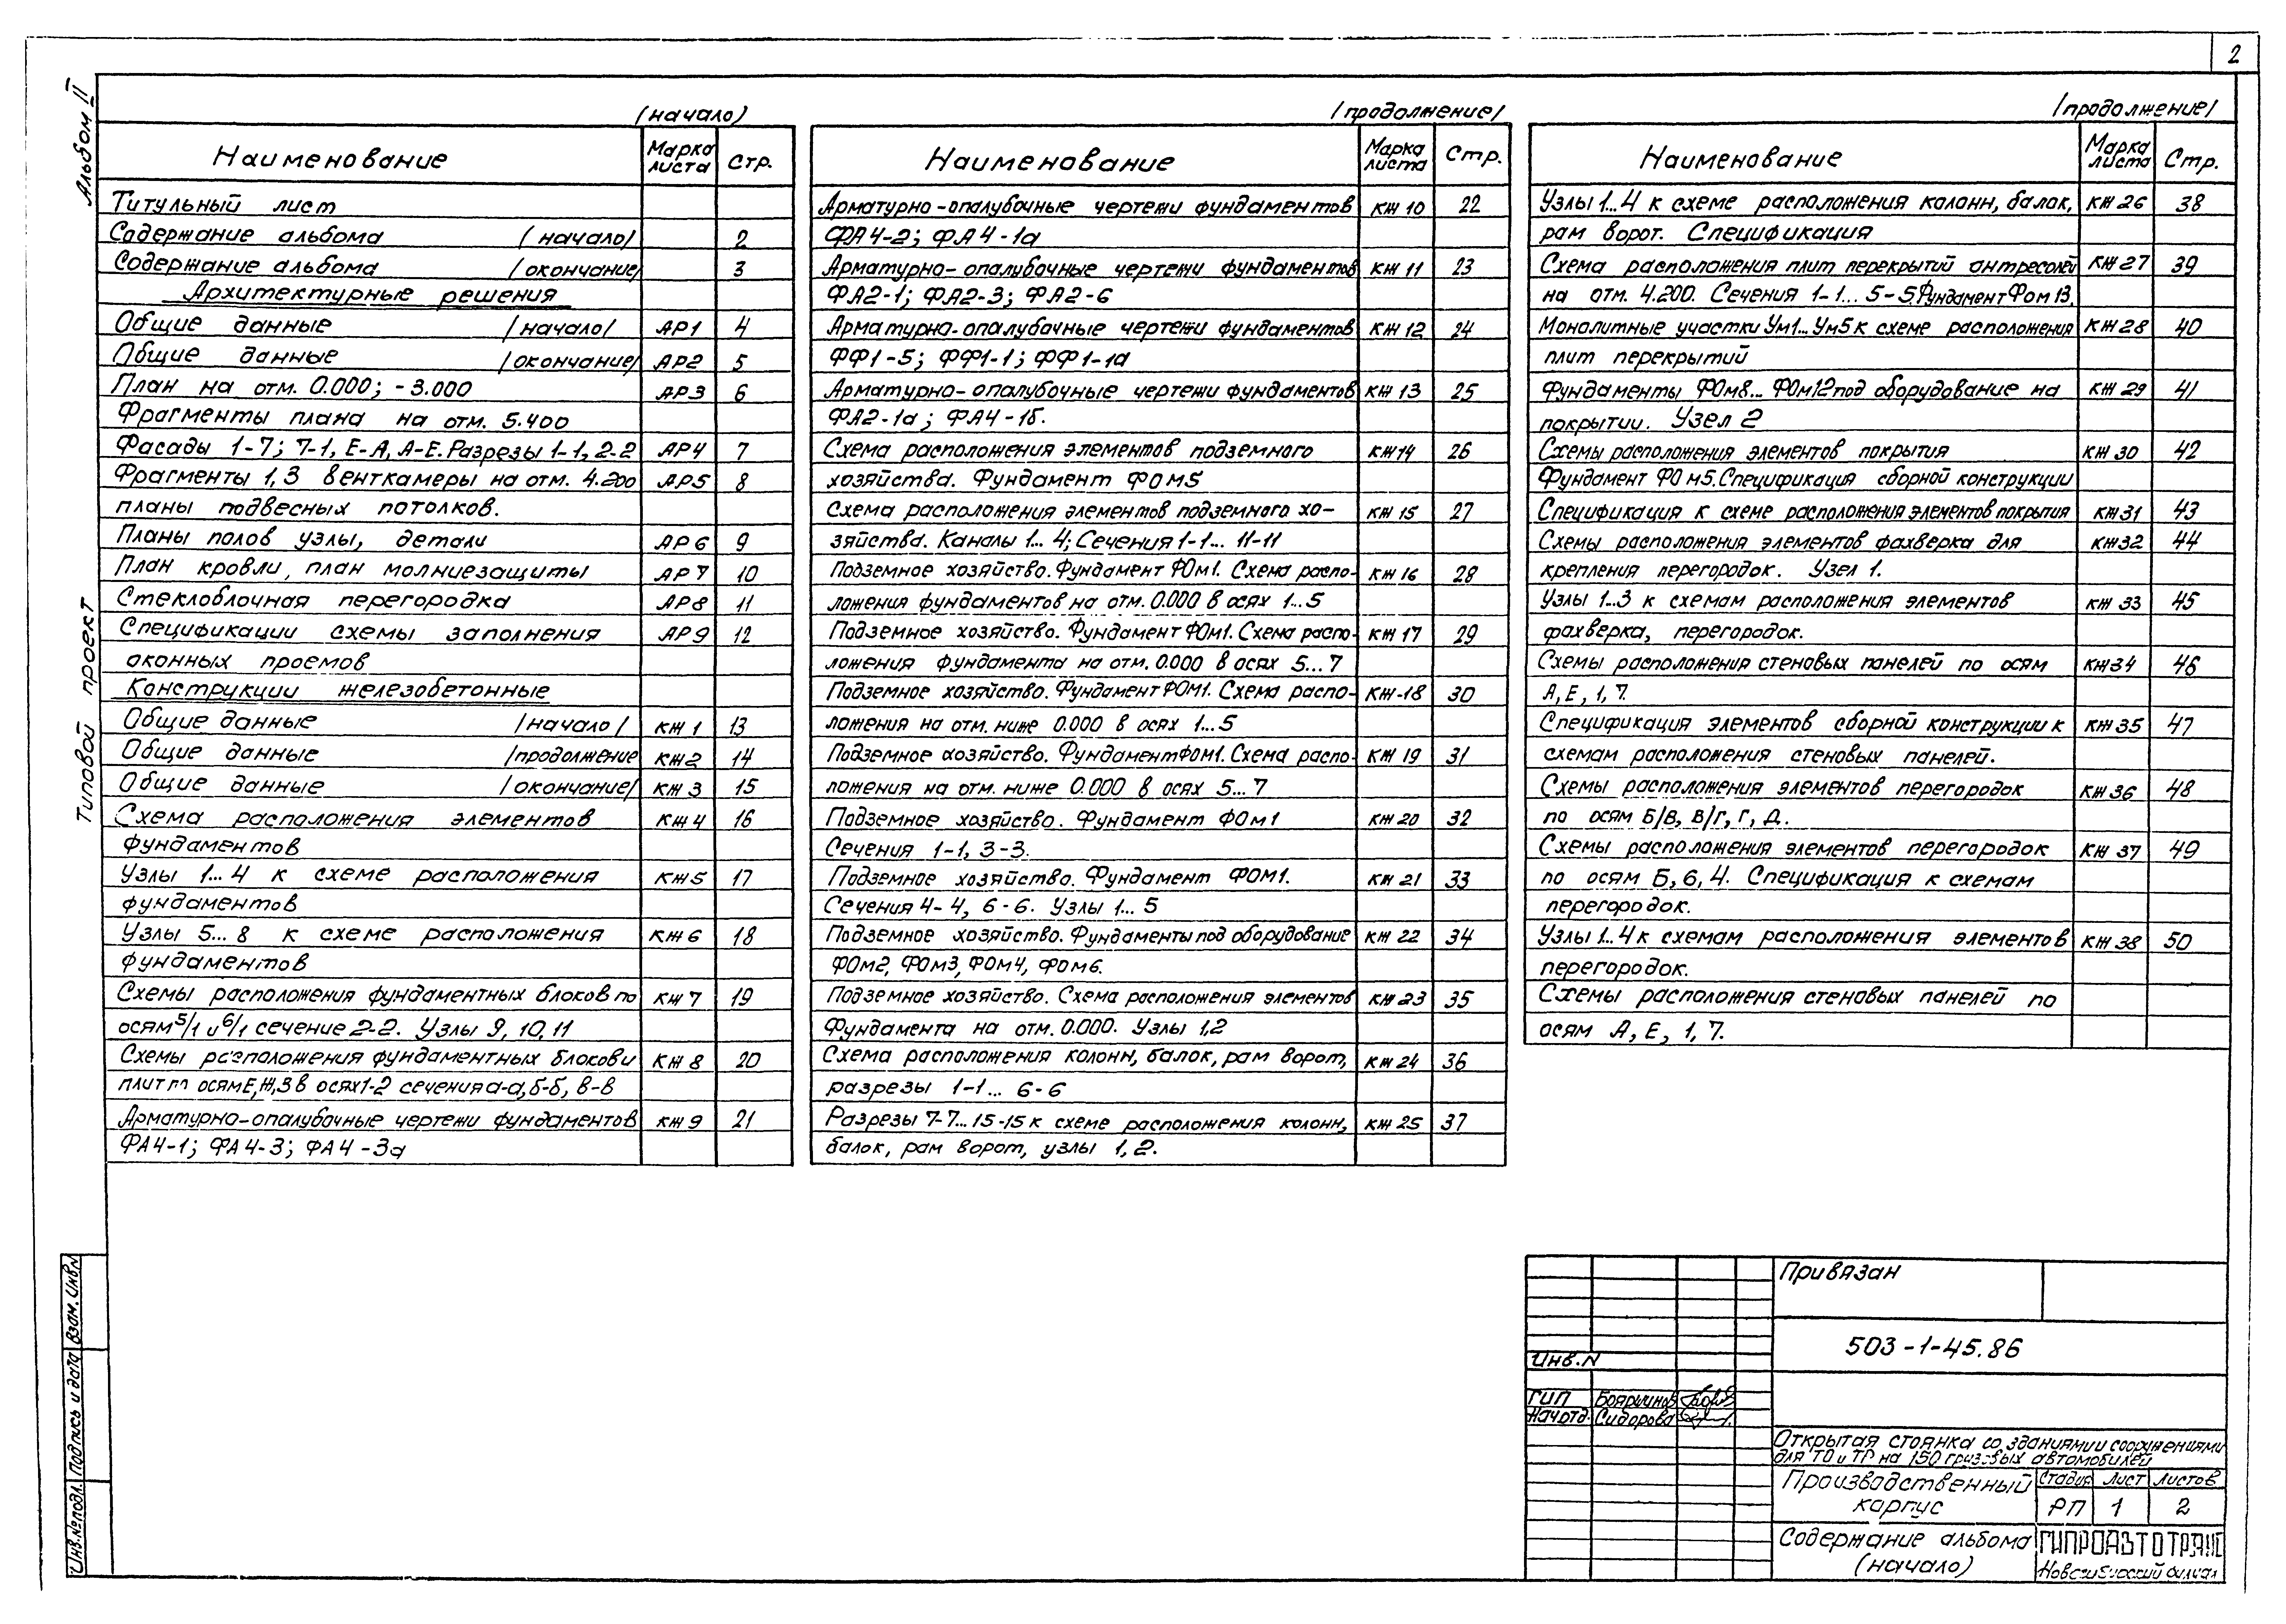 2
Альбом II
Типовой проект
(начало)
Наименование Марка листа Стр.
Титульный лист
Содержание альбома (начало) 2
Содержание альбома (окончание) 3
Архитектурные решения
Общие данные /начало/ АР1 4
Общие данные /окончание/ АР2 5
План на отм. 0.000; -3.000 АР3 6
Фрагменты плана на отм. 5.400
Фасады 1-7; 7-1, Е-А, А-Е. Разрезы 1-1, 2-2 АР4 7
Фрагменты 1,3 венткамеры на отм. 4.200 АР5 8
планы подвесных потолков.
Планы полов узлы, детали АР6 9
План кровли, план молниезащиты АР7 10
Стеклоблочная перегородка АР8 11
Спецификации схемы заполнения АР9 12
оконных проемов
Конструкции железобетонные
Общие данные /начало/ КЖ 1 13
Общие данные /продолжение КЖ2 14
Общие данные /окончание/ КЖ 3 15
Схема расположения элементов КЖ4 16
фундаментов
Узлы 1...4 к схеме расположения КЖ5 17
фундаментов
Узлы 5...8 к схеме расположения КЖ6 18
фундаментов
Схемы расположения фундаментных блоков по КЖ 7 19
осям 5/1 и 6/1 сечение 2-2. Узлы 9, 10, 11
Схемы расположения фундаментных блоков и КЖ 8 20
плит п осям Е,Ж,З в осях 1-2 сечения а-а, б-б, в-в
Арматурно-опалубочные чертежи фундаментов КЖ 9 21
ФА4-1; ФА4-3; ФА4-3а
/продолжение/
Наименование Марка листа Стр.
Арматурно-опалубочные чертежи фундаментов КЖ 10 22
ФА4-2; ФА4-1а
Арматурно-опалубочные чертежи фундаментов КЖ 11 23
ФА2-1; ФА2-3; ФА2-6
Арматурно-опалубочные чертежи фундаментов КЖ 12 24
ФФ1-5; ФФ1-1; ФФ1-1а
Арматурно-опалубочные чертежи фундаментов КЖ 13 25
ФА2-1а; ФА4-1б.
Схема расположения элементов подземного КЖ14 26
хозяйства. Фундамент ФОм5
Схема расположения элементов подземного хо- КЖ 15 27
зяйства. Каналы 1...4; Сечения 1-1... 11-11
Подземное хозяйство. Фундамент ФОм1. Схема распо- КЖ 16 28
ложения фундаментов на отм. 0.000 в осях 1...5
Подземное хозяйство. Фундамент ФОм1. Схема распо- КЖ 17 29
ложения фундамента на отм. 0.000 в осях 5...7
Подземное хозяйство. Фундамент ФОм1. Схема распо- КЖ-18 30
ложения на отм. ниже 0.000 в осях 1...5
Подземное хозяйство. Фундамент ФОм1. Схема распо- КЖ 19 31
ложения на отм. ниже 0.000 в осях 5...7
Подземное хозяйство. Фундамент ФОм1 КЖ 20 32
Сечения 1-1, 3-3.
Подземное хозяйство. Фундамент ФОм1. КЖ 21 33
Сечения 4-4, 6-6. Узлы 1...5
Подземное хозяйство. Фундаменты под оборудование КЖ 22 34
ФОм2, ФОм3, ФОм4, ФОм6.
Подземное хозяйство. Схема расположения элементов КЖ 23 35
Фундамента на отм. 0.000. Узлы 1,2
Схема расположения колонн, балок, рам ворот, КЖ24 36
разрезы 1-1... 6-6
Разрезы 7-7...15-15 к схеме расположения колонн, КЖ 25 37
балок, рам ворот, узлы 1, 2.
/продолжение/
Наименование Марка листа Стр.
Узлы 1...4 к схеме расположения колонн, балок, КЖ 26 38
рам ворот. Спецификация
Схема расположения плит перекрытий антресолей КЖ27 39
на отм. 4.200. Сечения 1-1... 5-5. Фундамент Фом 13.
Монолитные участки Ум1...Ум5 к схеме расположения КЖ28 40
плит перекрытий
Фундаменты ФОм8... ФОм12 под оборудование на КЖ 29 41
покрытии. Узел 2
Схемы расположения элементов покрытия КЖ 30 42
Фундамент ФОм5. Спецификация сборной конструкции
Спецификация к схеме расположения элементов покрытия КЖ31 43
Схемы расположения элементов фахверка для КЖ32 44
крепления перегородок. Узел 1.
Узлы 1...3 к схемам расположения элементов КЖ 33 45
фахверка, перегородок.
Схемы расположения стеновых панелей по осям КЖ34 46
А, Е, 1, 7.
Спецификация элементов сборной конструкции к КЖ35 47
схемам расположения стеновых панелей.
Схемы расположения элементов перегородок КЖ 36 48
по осям Б/В, В/Г, Г, Д.
Схемы расположения элементов перегородок КЖ 37 49
по осям Б, 6, 4. Спецификация к схемам
перегородок.
Узлы 1...4 к схемам расположения элементов КЖ 38 50
перегородок.
Схемы расположения стеновых панелей по
осям А, Е, 1, 7.
Взам. Инв.N
Подпись и дата
Инв.№ подл.
Привязан
503-1-45.86
Инв.N
ГИП Бояринов
Нач.отд. Сидорова
Открытая стоянка со зданиями и сооружениями
для ТО и ТР на 150 грузовых автомобилей
Производственный корпус
Стадия Лист Листов
РП 1 2
Содержание альбома
(начало)
ГИПРОАВТОТРАНС
Новосибирский филиал